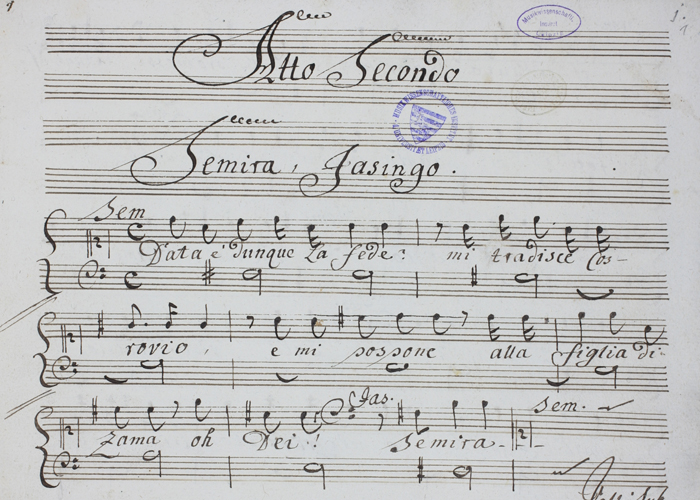 Atto Secondo
Semira, Jasingo.
Sem
Data è dunque La fede: mi tradisce Cos-
rovio, e mi pospone alla figlia di
Jas. Sem.
Zama oh Dei! Semira-